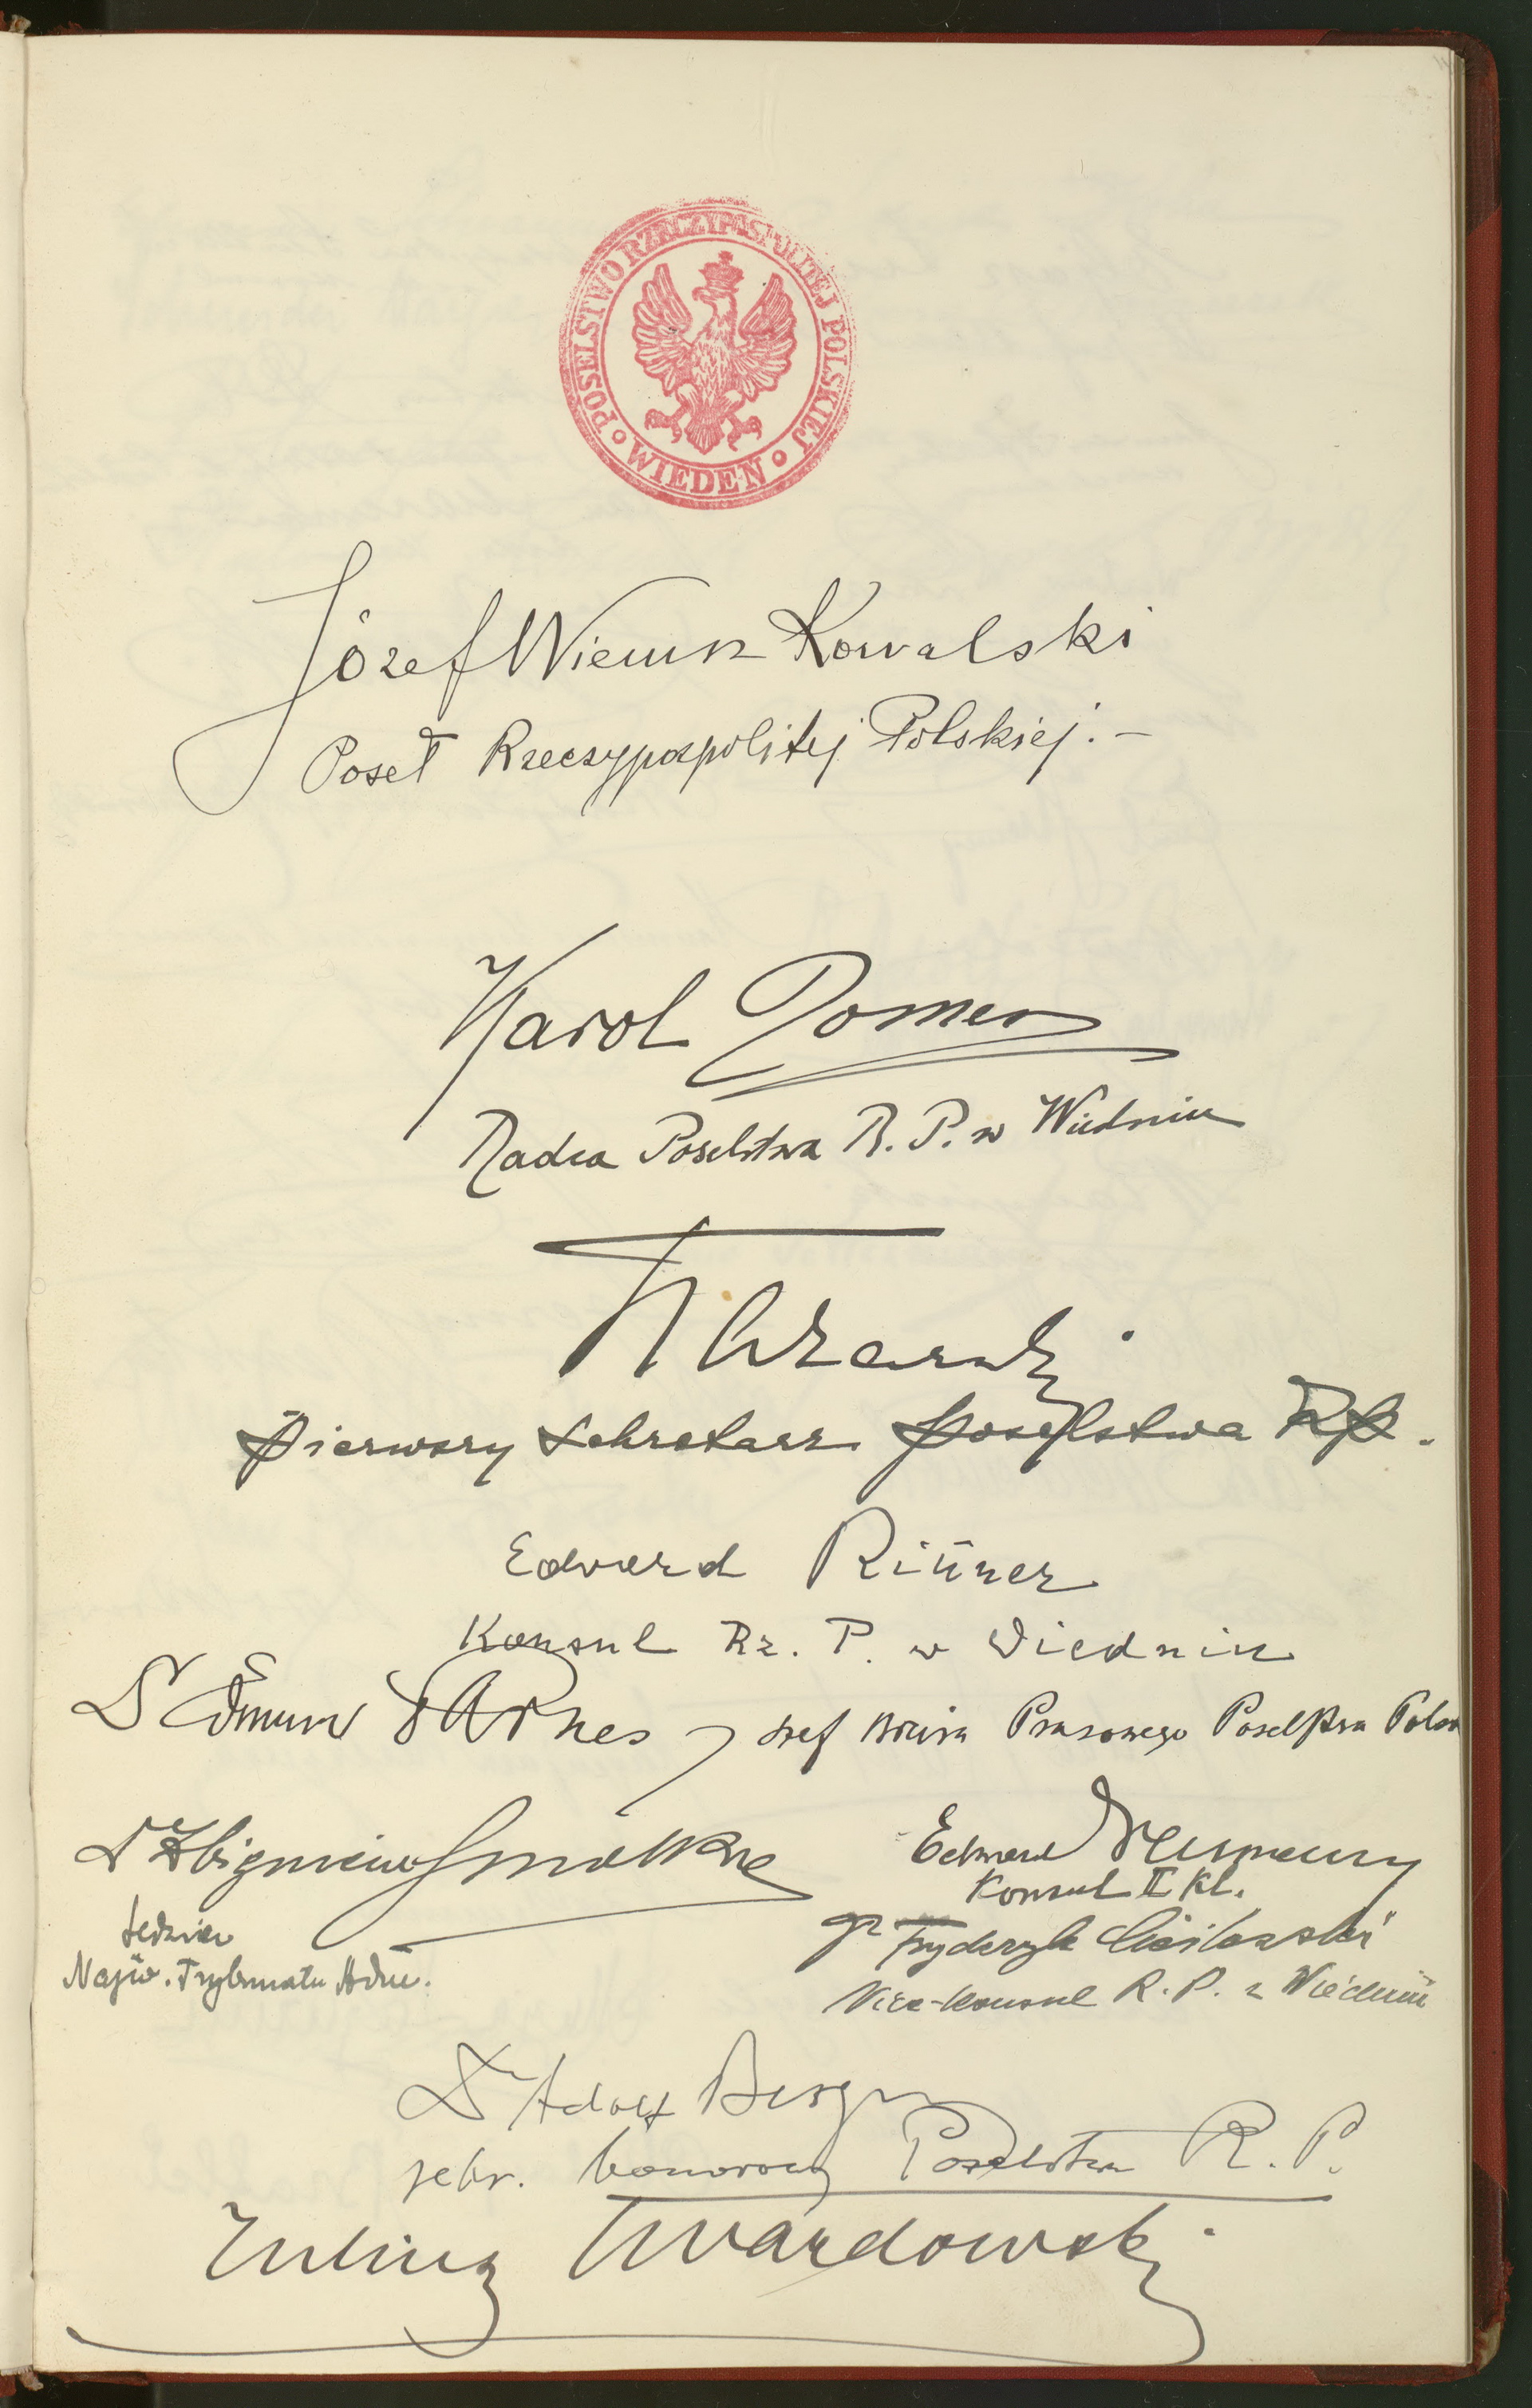 POSELSTWO RZECZYPOSPOLITEJ POLSKIEJ
WIEDEŃ
Józef Wierusz Kowalski
Poseł Rzeczypospolitej Polskiej.-
Karol
Radca Poselstwa R. P. w Wiedniu
Pierwszy Sekretarz Poselstwa RP.
Edward Rittner
Konsul Rz. P. w Wiedniu
Dr Parnes, szef Biura Prasowego Poselstwa
Dr Zbigniew Smolka
Sędzia
Najw. Trybunału Adm.
Edward
Konsul II Kl.
Fryderyk
Vice-Konsul R. P. z Wiednia
Dr Adolf Berger
sekr. honorowy Poselstwa R. P.
Juliusz Twardowski